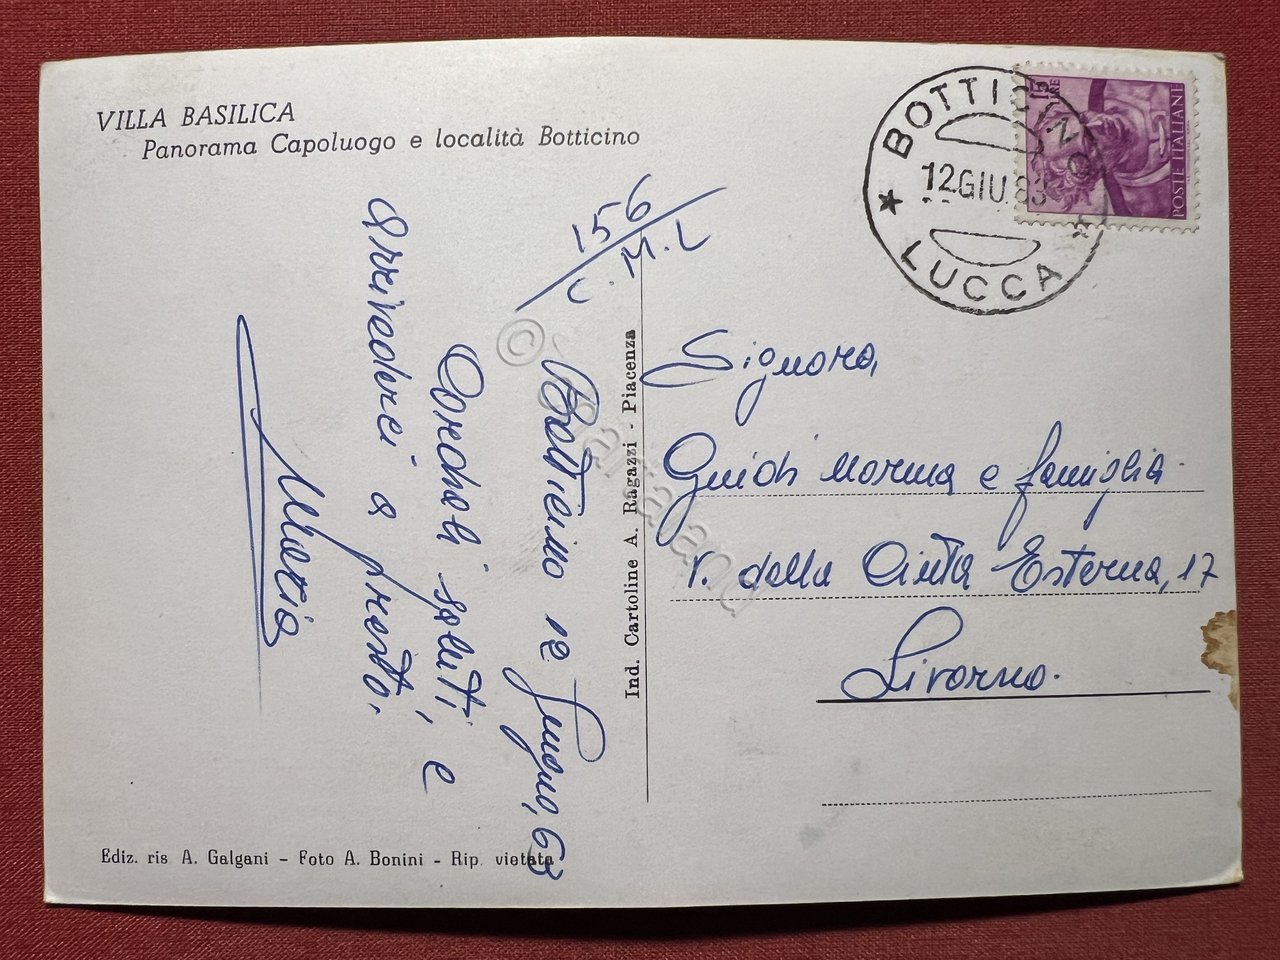 VILLA BASILICA
Panorama Capoluogo e località Botticino
BOTTICINO
12 GIU. 63
LUCCA
15 LIRE
POSTE ITALIANE
156
C. M. L
Botticino 12 giugno, 63
Cordiali saluti, e
arrivederci a presto.
Maria
Ind. Cartoline A. Ragazzi - Piacenza
Signora,
Guidi Norma e famiglia
V. della Cinta Esterna, 17
Livorno.
Ediz. ris A. Galgani - Foto A. Bonini - Rip. vietata